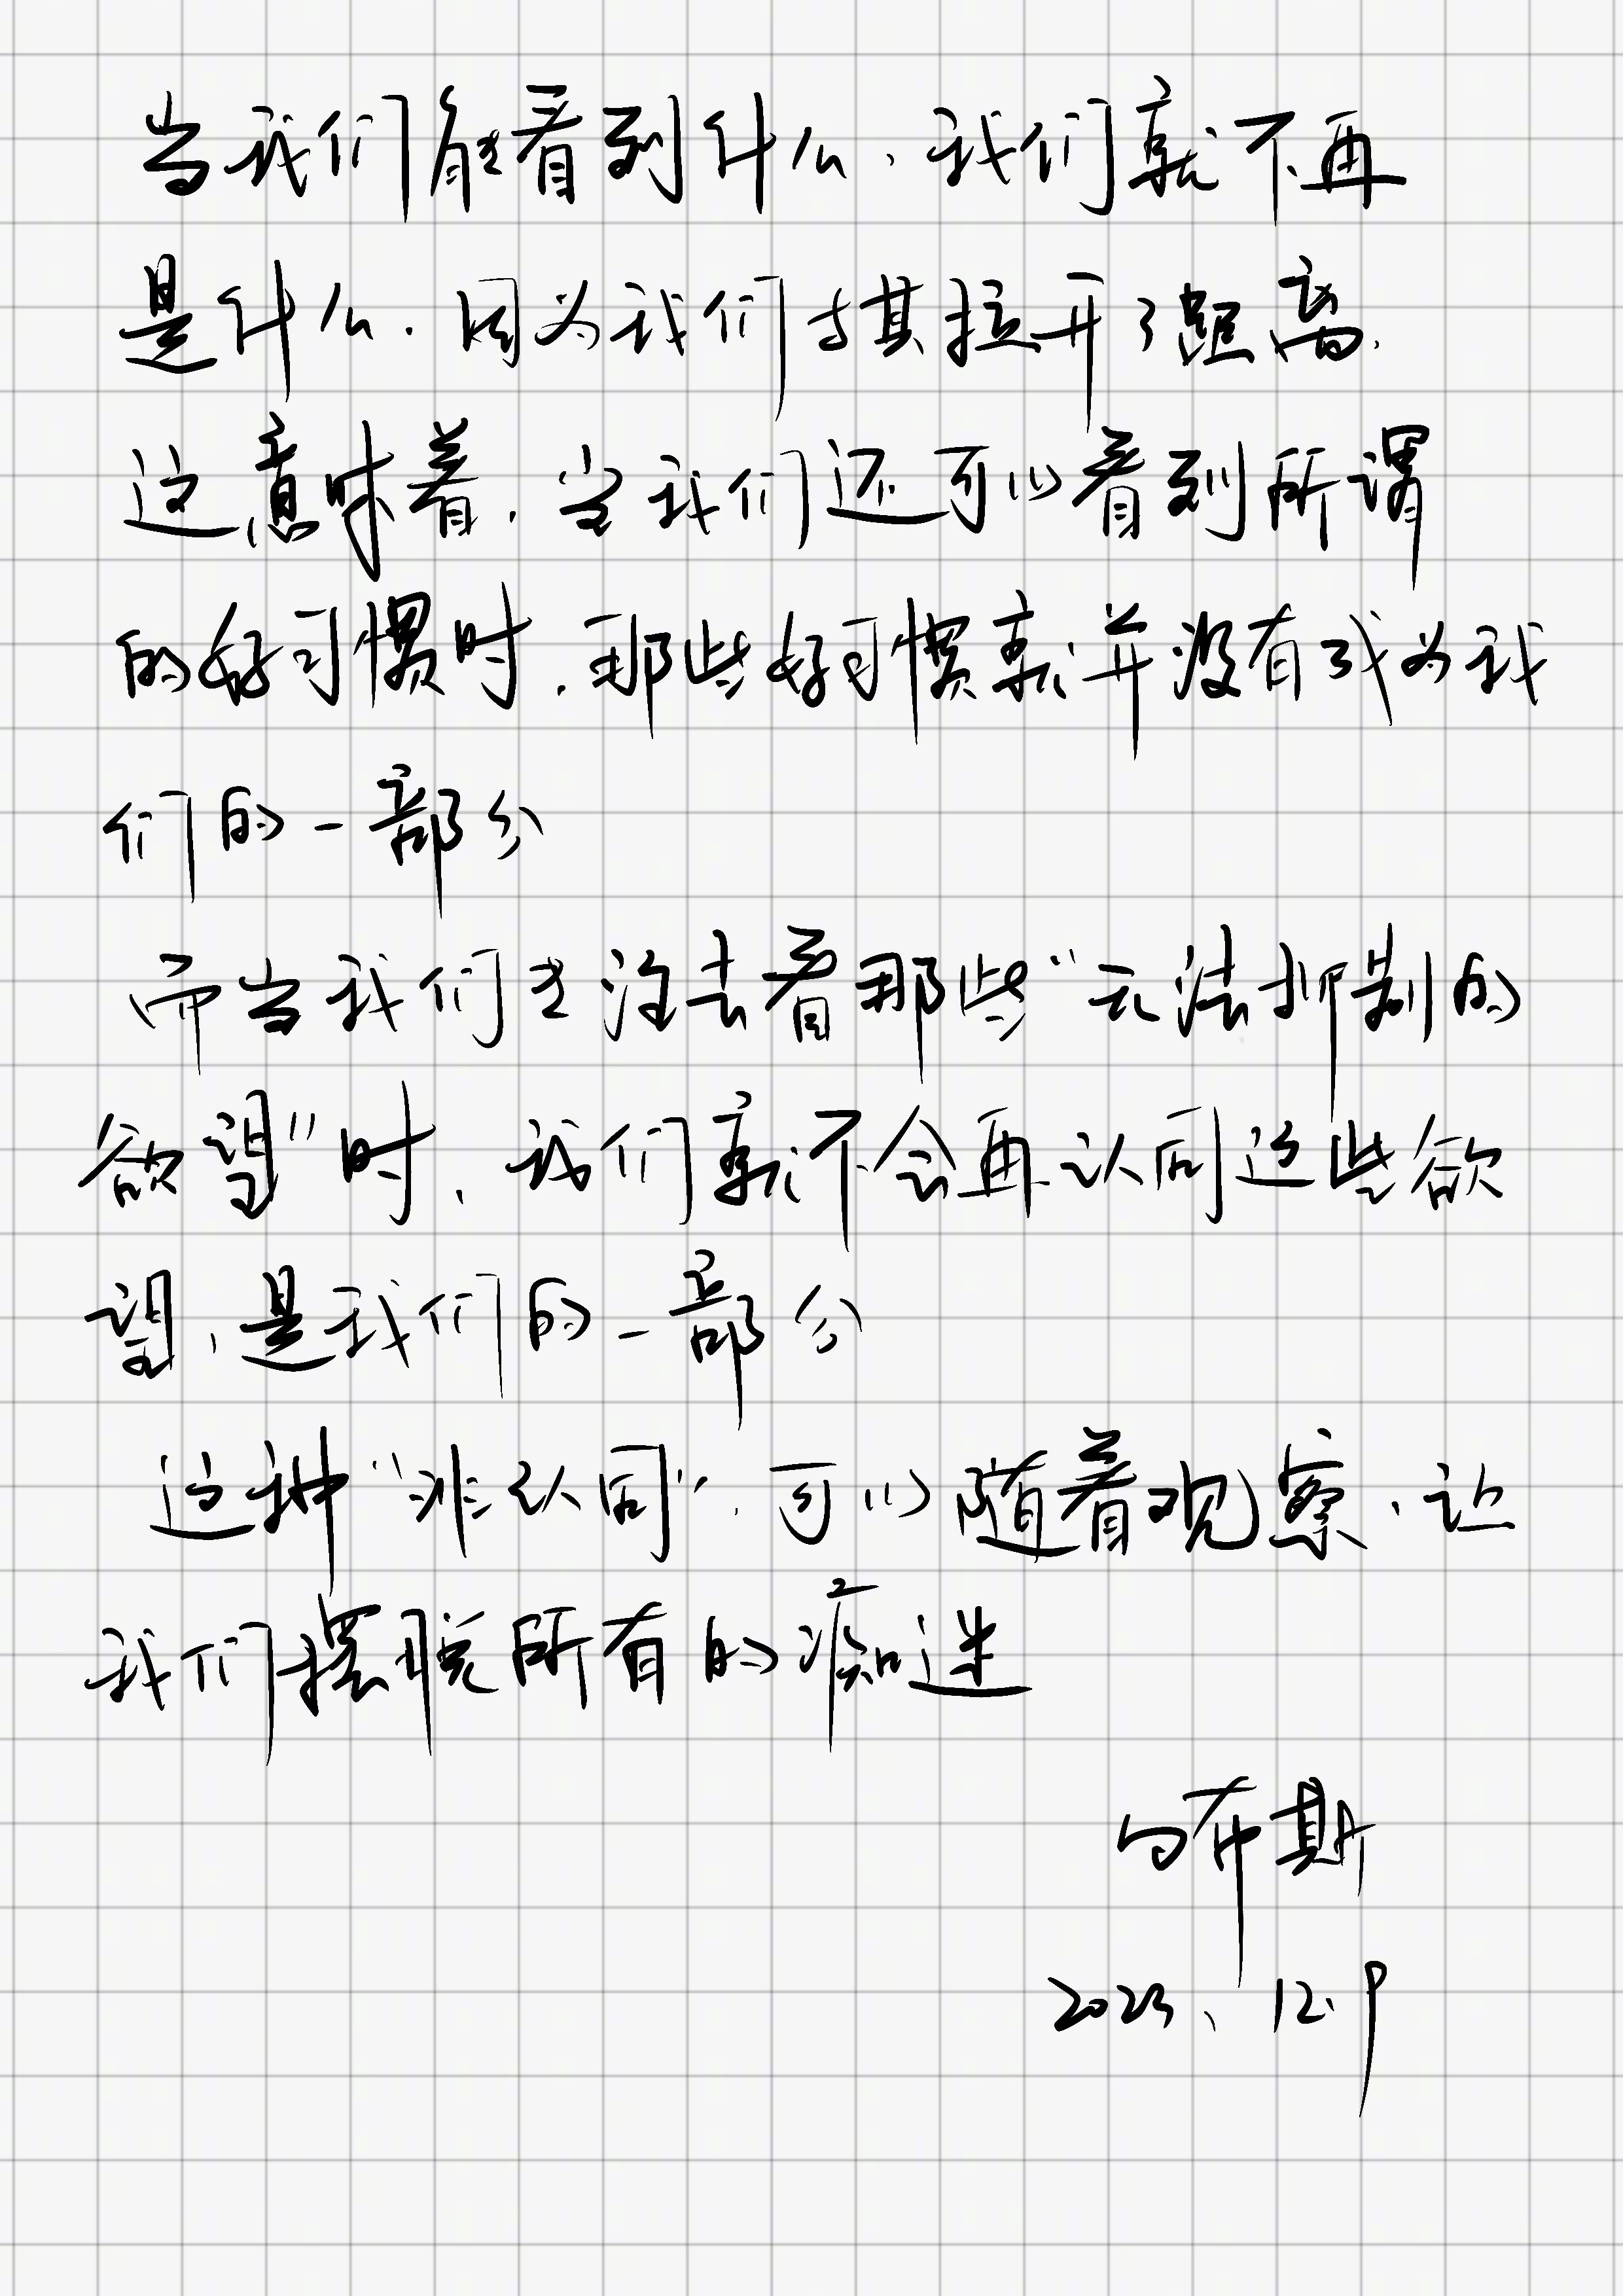 当我们能看到什么，我们就不再
是什么．因为我们与其拉开了距离．
这意味着，当我们还可以看到所谓
的好习惯时，那些好习惯就并没有成为我
们的一部分
而当我们去看那些“无法抑制的
欲望”时，我们就不会再认同这些欲
望，是我们的一部分
这种“非认同”，可以随着观察，让
我们摆脱所有的痴迷
布斯
2023、12.9